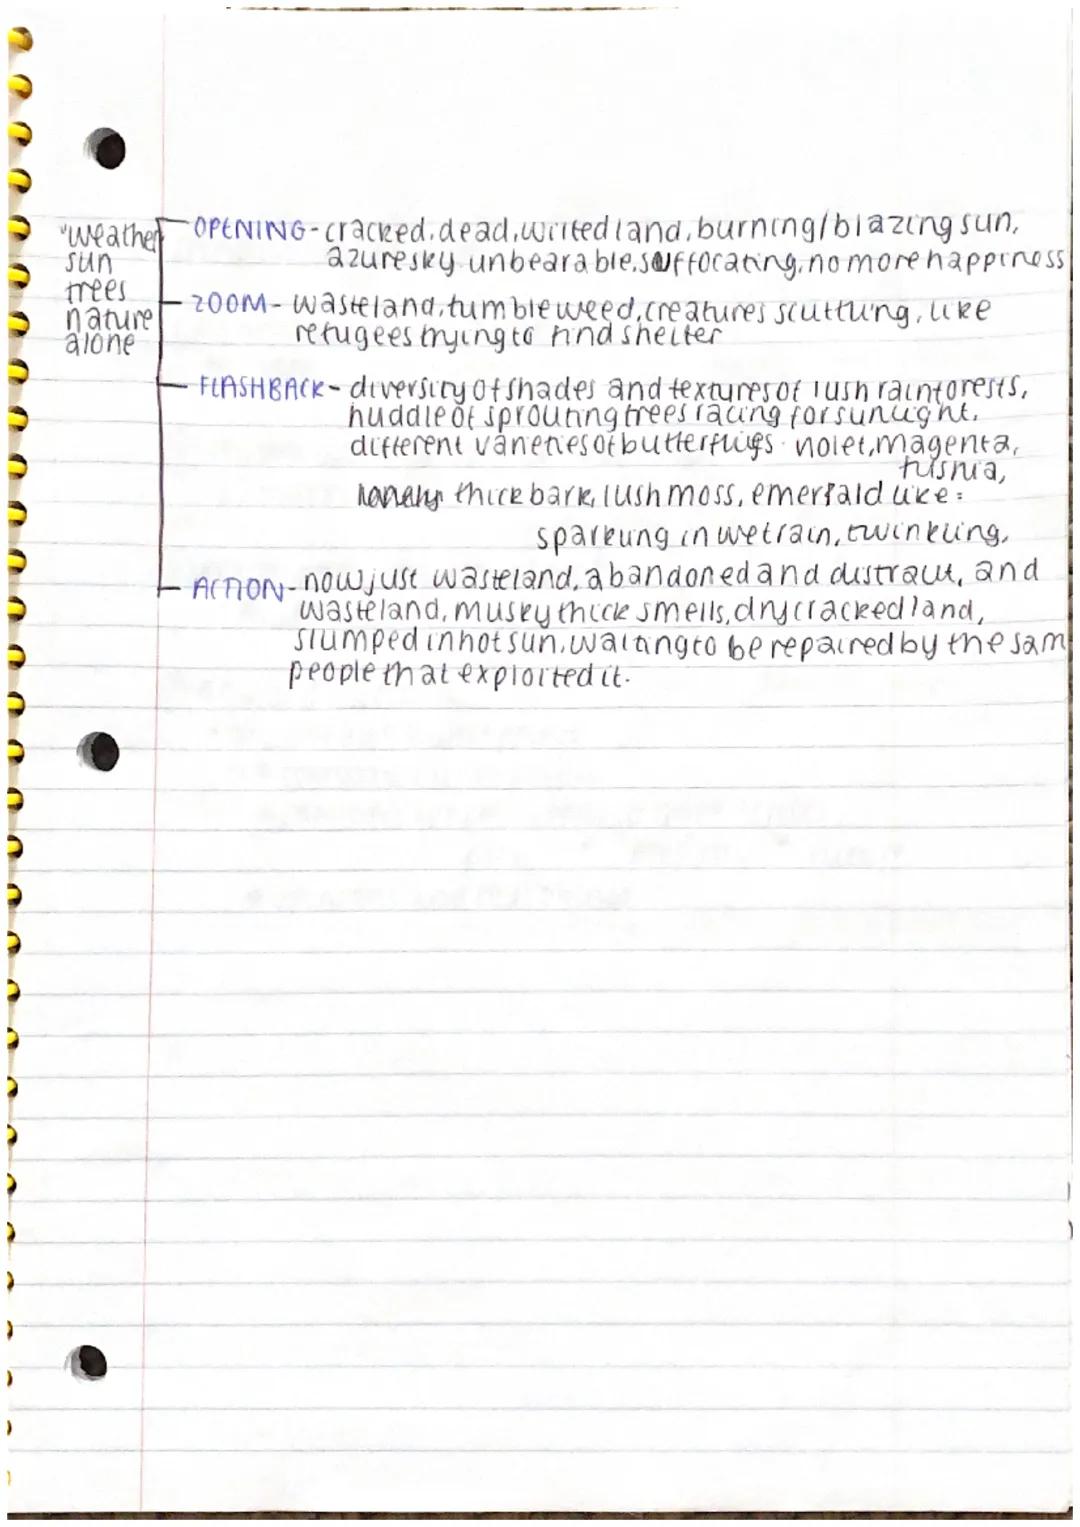 "weather
sun
trees
nature
alone
OPENING - cracked, dead, wilted land, burning/blazing sun,
azure sky. unbearable, suffocating, no more happiness
ZOOM - wasteland, tumbleweed, creatures scuttling, like
refugees trying to find shelter
FLASHBACK - diversity of shades and textures of lush rainforests,
huddle of sprouting trees racing for sunlight.
different varieties of butterflies. violet, magenta,
fushia,
thick bark, lush moss, emerald like:
sparkling in wet rain, twinkling.
ACTION - now just wasteland, abandoned and distraut, and
wasteland, musky thick smells, dry cracked land,
slumped in hot sun, waiting to be repaired by the sam
people that exploited it.